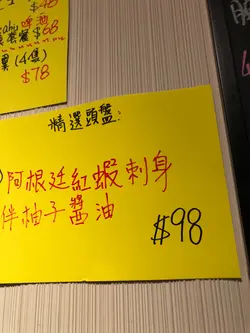 $48
啤酒
套餐 $68
(4隻)
$78
精選頭盤:
阿根廷紅蝦刺身
伴柚子醬油
$98